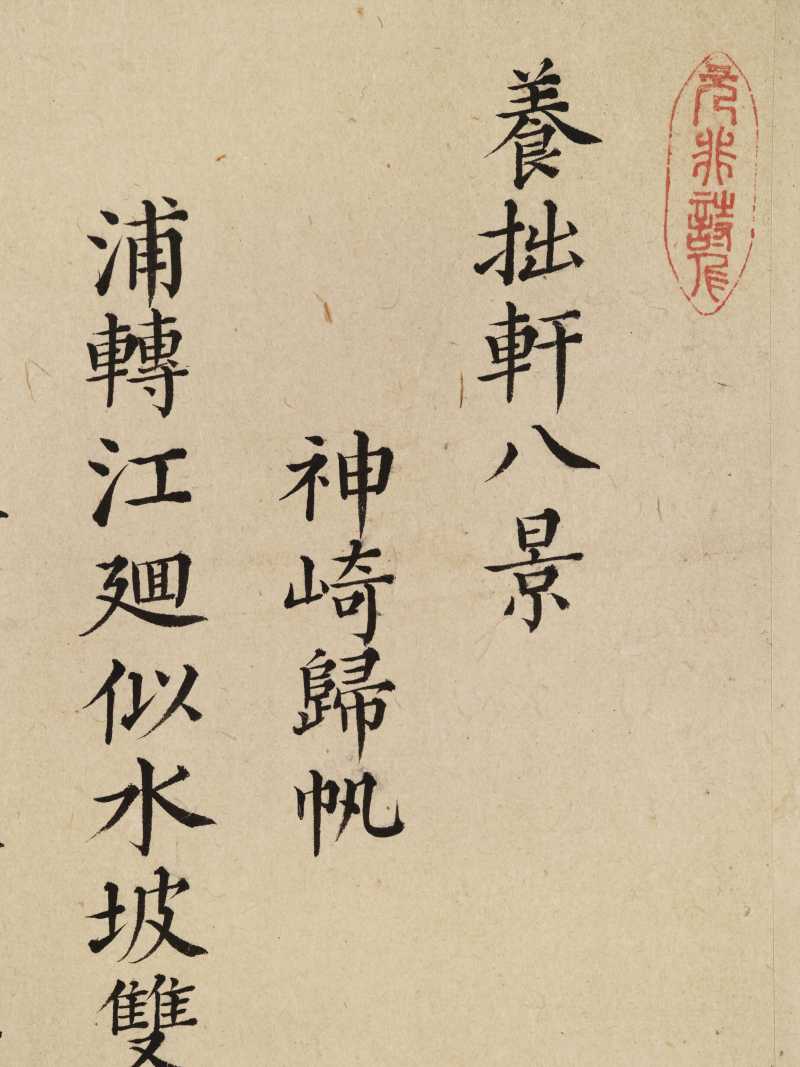 養拙軒八景
神崎歸帆
浦轉江廻似水坡雙